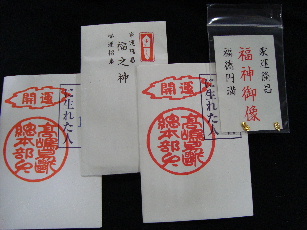 開運
生れた人
高島易断
総本部之
家運隆昌
福之神
開運
生れた人
高島易断
総本部之
家運隆昌
福神御像
福徳円満